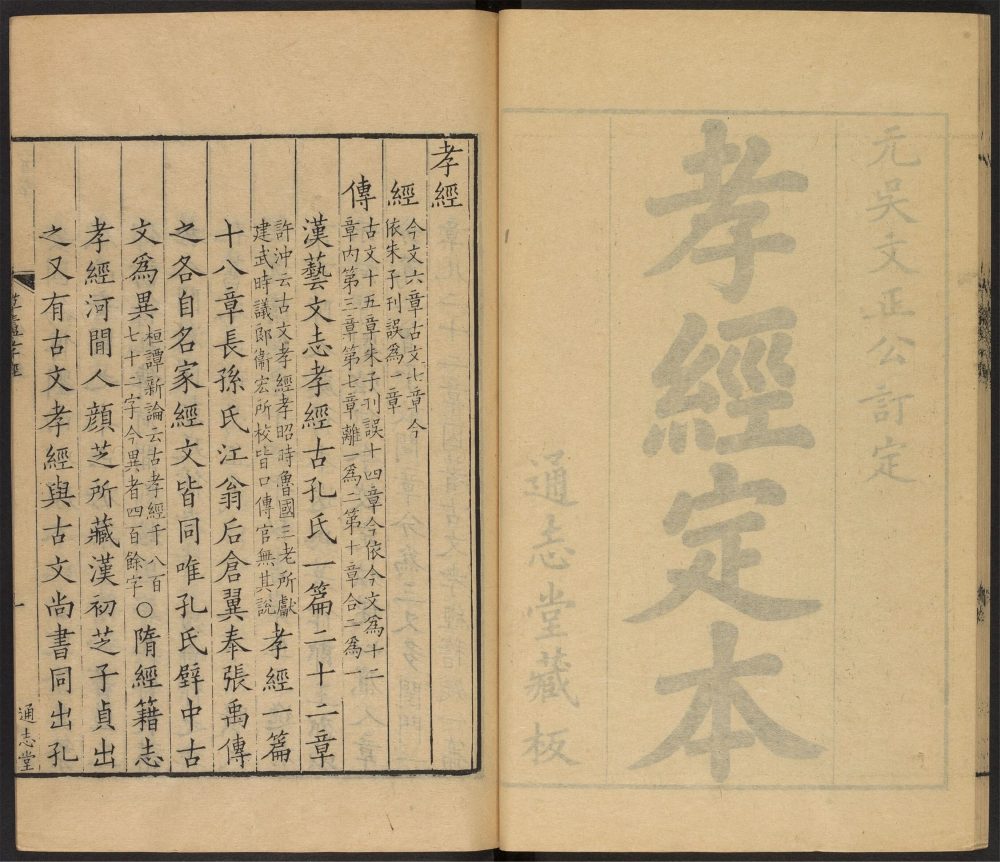 元吳文正公訂定
孝經定本
通志堂藏板
孝經
經 今文六章古文七章今
依朱子刊誤為一章
傳 古文十五章朱子刊誤十四章今依今文為十二
章內第三章第七章離一為二第十章合二為一
漢藝文志孝經古孔氏一篇二十二章
許沖云古文孝經孝昭時魯國三老所獻
建武時議郎衞宏所校皆口傳官無其說
孝經一篇
十八章長孫氏江翁后倉翼奉張禹傳
之各自名家經文皆同唯孔氏壁中古
文為異
桓譚新論云古孝經千八百
七十二字今異者四百餘字
○隋經籍志
孝經河閒人顏芝所藏漢初芝子貞出
之又有古文孝經與古文尚書同出孔
通志堂